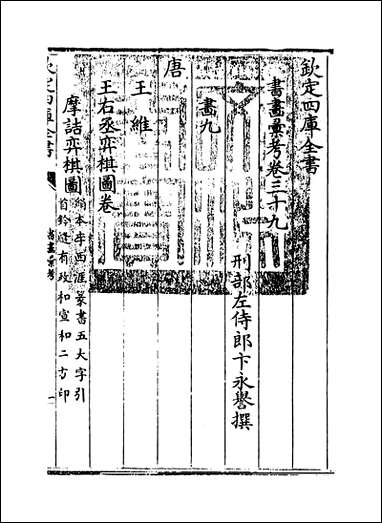 欽定四庫全書
書畫彙考卷三十九
刑部左侍郎卞永譽撰
畫九
唐
王維
王右丞弈棋圖卷
摩詰弈棋圖
絹本李西涯篆書五大字引
首鈐縫有政和宣和二方印
欽定四庫全書
書畫彙考
一